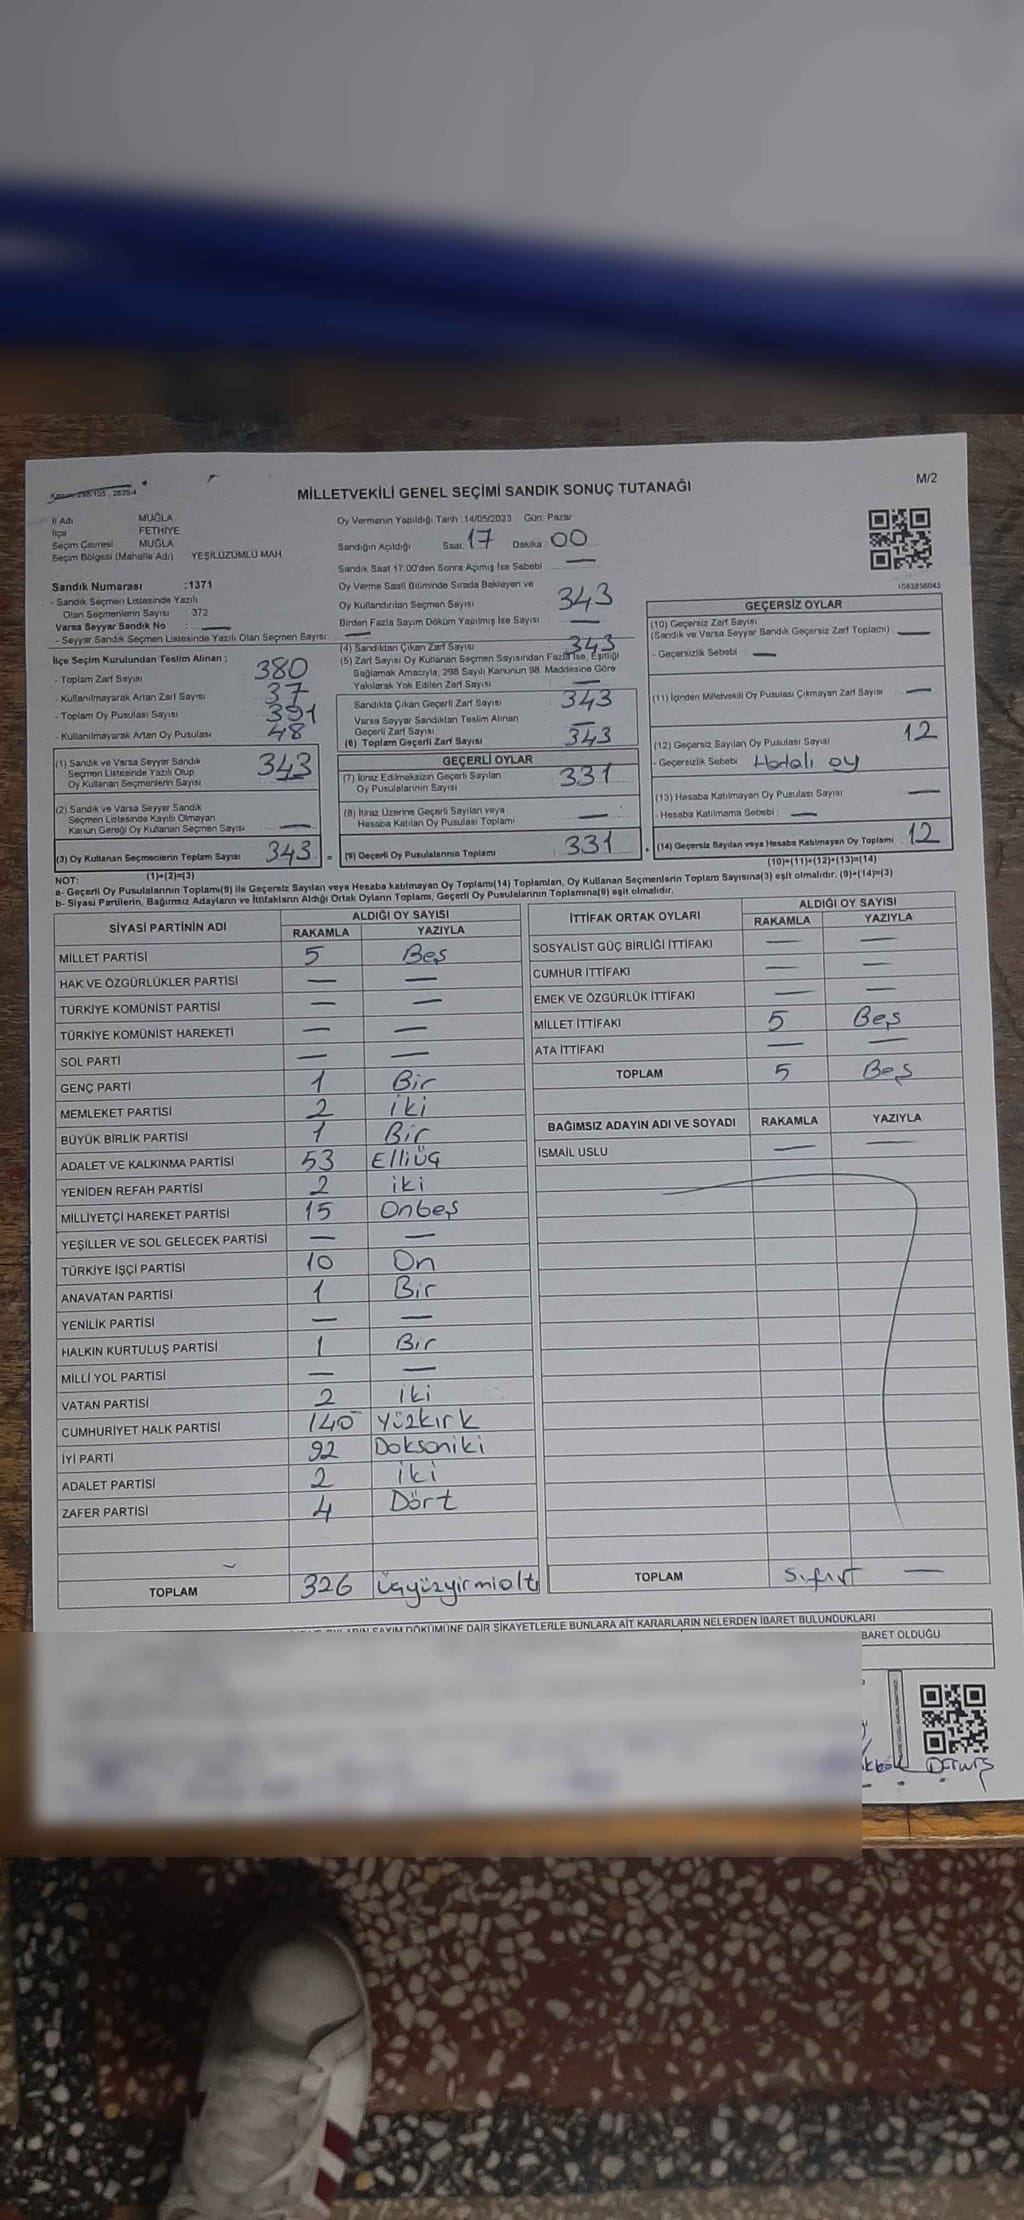 MİLLETVEKİLİ GENEL SEÇİMİ SANDIK SONUÇ TUTANAĞI
M/2
İl Adı MUĞLA
İlçe FETHİYE
Seçim Çevresi MUĞLA
Seçim Bölgesi (Mahalle Adı) YEŞİLÜZÜMLÜ MAH
Oy Vermenin Yapıldığı Tarih :14/05/2023 Gün: Pazar
Sandığın Açıldığı Saat 17 Dakika 00
Sandık Saat 17:00'den Sonra Açımış İse Sebebi —
Sandık Numarası :1371
- Sandık Seçmen Listesinde Yazılı
Olan Seçmenlerin Sayısı : 372
Varsa Seyyar Sandık No : —
- Seyyar Sandık Seçmen Listesinde Yazılı Olan Seçmen Sayısı: —
Oy Verme Saati Bitiminde Sırada Bekleyen ve
Oy Kullandırılan Seçmen Sayısı 343
Birden Fazla Sayım Döküm Yapılmış İse Sayısı —
1083856045
İlçe Seçim Kurulundan Teslim Alınan ;
- Toplam Zarf Sayısı 380
- Kullanılmayarak Artan Zarf Sayısı 37
- Toplam Oy Pusulası Sayısı 391
- Kullanılmayarak Artan Oy Pusulası 48
(1) Sandık ve Varsa Seyyar Sandık
Seçmen Listesinde Yazılı Olup
Oy Kullanan Seçmenlerin Sayısı 343
(2) Sandık ve Varsa Seyyar Sandık
Seçmen Listesinde Kayıtlı Olmayan
Kanun Gereği Oy Kullanan Seçmen Sayısı —
(3) Oy Kullanan Seçmenlerin Toplam Sayısı 343 =
(1)+(2)=(3)
(4) Sandıktan Çıkan Zarf Sayısı 343
(5) Zarf Sayısı Oy Kullanan Seçmen Sayısından Fazla İse, Eşitliği
Sağlamak Amacıyla, 298 Sayılı Kanunun 98. Maddesine Göre
Yakılarak Yok Edilen Zarf Sayısı —
Sandıkta Çıkan Geçerli Zarf Sayısı 343
Varsa Seyyar Sandıktan Teslim Alınan
Geçerli Zarf Sayısı —
(6) Toplam Geçerli Zarf Sayısı 343
GEÇERLİ OYLAR
(7) İtiraz Edilmeksizin Geçerli Sayılan
Oy Pusulalarının Sayısı 331
(8) İtiraz Üzerine Geçerli Sayılan veya
Hesaba Katılan Oy Pusulası Toplamı —
(9) Geçerli Oy Pusulalarının Toplamı 331 +
GEÇERSİZ OYLAR
(10) Geçersiz Zarf Sayısı
(Sandık ve Varsa Seyyar Sandık Geçersiz Zarf Toplamı) —
- Geçersizlik Sebebi : —
(11) İçinden Milletvekili Oy Pusulası Çıkmayan Zarf Sayısı —
(12) Geçersiz Sayılan Oy Pusulası Sayısı 12
- Geçersizlik Sebebi Hatalı oy
(13) Hesaba Katılmayan Oy Pusulası Sayısı —
- Hesaba Katılmama Sebebi : —
(14) Geçersiz Sayılan veya Hesaba Katılmayan Oy Toplamı 12
(10)+(11)+(12)+(13)=(14)
NOT:
a- Geçerli Oy Pusulalarının Toplamı(9) ile Geçersiz Sayılan veya Hesaba katılmayan Oy Toplamı(14) Toplamları, Oy Kullanan Seçmenlerin Toplam Sayısına(3) eşit olmalıdır. (9)+(14)=(3)
b- Siyasi Partilerin, Bağımsız Adayların ve İttifakların Aldığı Ortak Oyların Toplamı, Geçerli Oy Pusulalarının Toplamına(9) eşit olmalıdır.
SİYASİ PARTİNİN ADI ALDIĞI OY SAYISI
RAKAMLA YAZIYLA
MİLLET PARTİSİ 5 Beş
HAK VE ÖZGÜRLÜKLER PARTİSİ — —
TÜRKİYE KOMÜNİST PARTİSİ — —
TÜRKİYE KOMÜNİST HAREKETİ — —
SOL PARTİ — —
GENÇ PARTİ 1 Bir
MEMLEKET PARTİSİ 2 iki
BÜYÜK BİRLİK PARTİSİ 1 Bir
ADALET VE KALKINMA PARTİSİ 53 Elliüç
YENİDEN REFAH PARTİSİ 2 iki
MİLLİYETÇİ HAREKET PARTİSİ 15 Onbeş
YEŞİLLER VE SOL GELECEK PARTİSİ — —
TÜRKİYE İŞÇİ PARTİSİ 10 On
ANAVATAN PARTİSİ 1 Bir
YENİLİK PARTİSİ — —
HALKIN KURTULUŞ PARTİSİ 1 Bir
MİLLİ YOL PARTİSİ — —
VATAN PARTİSİ 2 iki
CUMHURİYET HALK PARTİSİ 140 Yüzkırk
İYİ PARTİ 92 Doksaniki
ADALET PARTİSİ 2 iki
ZAFER PARTİSİ 4 Dört
TOPLAM 326 Üçyüzyirmialtı
İTTİFAK ORTAK OYLARI ALDIĞI OY SAYISI
RAKAMLA YAZIYLA
SOSYALİST GÜÇ BİRLİĞİ İTTİFAKI — —
CUMHUR İTTİFAKI — —
EMEK VE ÖZGÜRLÜK İTTİFAKI — —
MİLLET İTTİFAKI 5 Beş
ATA İTTİFAKI — —
TOPLAM 5 Beş
BAĞIMSIZ ADAYIN ADI VE SOYADI RAKAMLA YAZIYLA
İSMAİL USLU — —
TOPLAM Sıfır —
SAYIM DÖKÜMÜNE DAİR ŞİKAYETLERLE BUNLARA AİT KARARLARIN NELERDEN İBARET BULUNDUKLARI
İBARET OLDUĞU